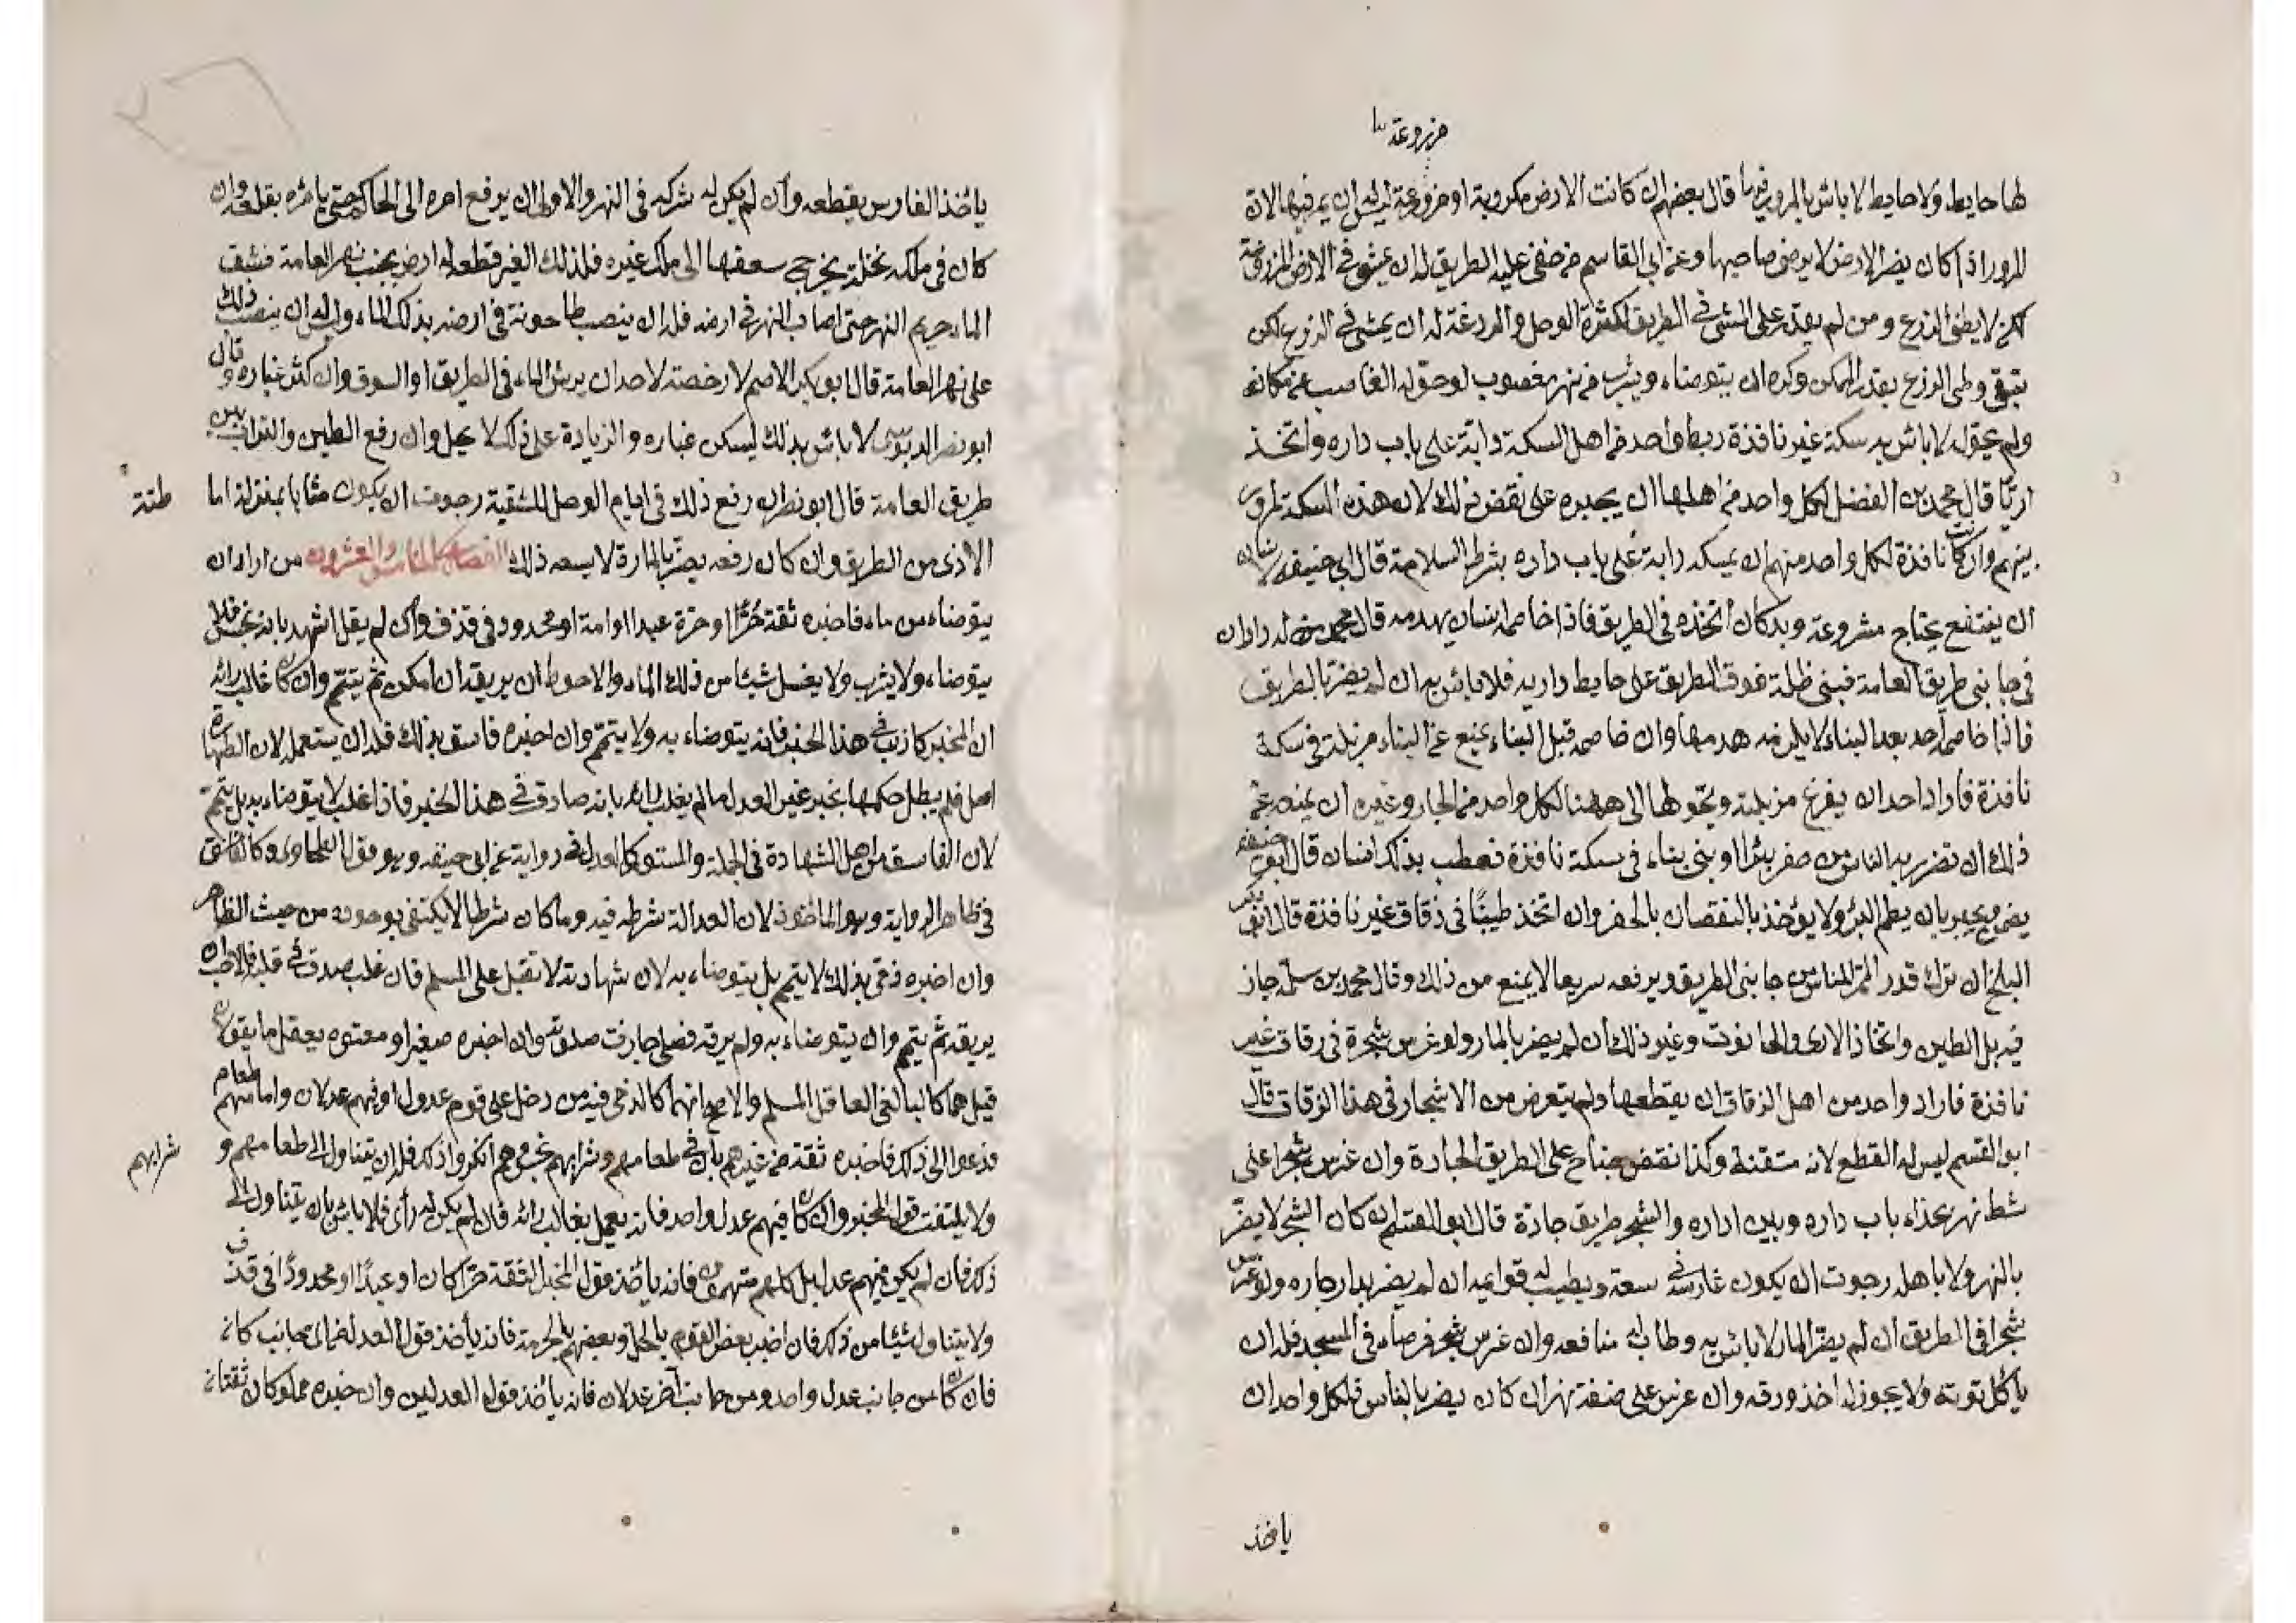 مزروعة
لها حايط ولا حايط لا باس بالمرور فيها قال بعضهم ان كانت الارض مكروبة او مزروعة ليس له ان يمر فيها لان
المرور اذا كان يضر الارض لا يرضى صاحبها وعن ابي القاسم من خفى عليه الطريق له ان يمشى في الارض المزروعة
لكن لا يطئ الزرع ومن لم يقدر على المشى في الطريق لكثرة الوحل والردغة له ان يمشى في الزرع لكن
يتقى وطى الزرع بقدر الممكن وكره ان يتوضاء ويشرب من نهر مغصوب لو حوله الغاصب عن مكانه
ولم يحوله لا باس به سكة غير نافذة ربط واحد من اهل السكة دابة على باب داره واتخذ
اريا قال محمد بن الفضل لكل واحد من اهلها ان يجبره على نقض ذلك لان هذه السكة لمرور
بينهم وان كانت نافذة لكل واحد منهم ان يمسك دابة على باب داره بشرط السلامة قال ابي حنيفه
ان ينتفع بجناح مشروعة وبدكان اتخذه في الطريق فاذا خاصمه انسان يهدمه قال محمد من له داران
في جانبي طريق العامة فبنى ظلة فوق الطريق على حايط داريه فلا باس به ان لم يضر بالطريق
فاذا خاصم احد بعد البناء لا يلزمه هدمها وان خاصمه قبل البناء يمنع عن البناء مزبلة في سكة
نافذة فاراد احد ان يفرغ مزبلته ويحولها الى ههنا لكل واحد من الجار وغيره ان يمنعه عن
ذلك ان تضرر به الناس من حفر بئرا او بنى بناء في سكة نافذة فعطب بذلك انسان قال ابو حنيفة
يضمن ويجبر بان يطم البئر ولا يؤخذ بالنقصان بالحفر وان اتخذ طينًا في زقاق غير نافذة قال ابو بكر
البلخي ان ترك قدر الممر للناس من جانبي الطريق ويرفعه سريعا لا يمنع من ذلك وقال محمد بن سلمة جاز
فيه بل الطين واتخاذ الارى والحانوت وغيره ذلك ان لم يضر بالمار ولو غرس شجرة في زقاق غير
نافذة فاراد واحد من اهل الزقاق ان يقطعها ولم يتعرض من الاشجار في هذا الزقاق قال
ابو القسم ليس له القطع لانه متعنت وكذا نقض جناح على الطريق الجادة وان غرس شجرا على
شط نهر بحذاء باب داره وبين اداره والشجر طريق جادة قال ابو القسم ان كان الشجر لا يضر
بالنهر ولا باهله رجوت ان يكون غارسه في سعة ويطيب له قوايمه ان لم يضر بدار جاره ولو غرس
شجرا في الطريق ان لم يضر المار لا باس به وطاب له منافعه وان غرس شجر فرصاد في المسجد فله ان
ياكل توته ولا يجوز له اخذ ورقه وان غرس على ضفة نهر ان كان يضر بالناس فلكل واحد ان
ياخذ
ياخذ الغارس بقطعه وان لم يكن له شركه في النهر والاولى ان يرفع امره الى الحاكم حتى يامره بقلعه وان
كان في ملكه نخلة يخرج سعفها الى ملك غيره فلذلك الغير قطعه له ارض بجنب نهر العامة فشق
الماء حريم النهر حتى اصاب النهر في ارضه فله ان ينصب طاحونة في ارضه بذلك الماء وليس له ان ينصب ذلك
على نهر العامة قال ابو بكر الاصم لا رخصة لاحد ان يرش الماء في الطريق او السوق وان كثر غباره وقال
ابو نصر الدبوسى لا باس بذلك ليسكن غباره والزيادة على ذلك لا يحل وان رفع الطين والتراب من
طريق العامة قال ابو نصر ان رفع ذلك في ايام الوحل للتنقية رجوت ان يكون مثابا بمنزلة اماطة
الاذى من الطريق وان كان رفعه يضر بالمارة لا يسعه ذلك الفصل الخامس والعشرون من اراد ان
يتوضاء من ماء فاخبره ثقة حرًا او حرة عبدا او امة او محدود في قذف وان لم يقل اشهد بانه نجس فلا
يتوضاء ولا يشرب ولا يغسل شيئا من ذلك الماء والاحوط ان يريقه ان امكن ثم يتيمم وان كان غالب رايه
ان المخبر كاذب في هذا الخبر فانه يتوضاء به ولا يتيمم وان اخبره فاسق بذلك فله ان يستعمله لان الطهارة
اصل فلم يبطل حكمها بخبر غير العدل ما لم يغلب رايه بانه صادق في هذا الخبر فاذا غلب لا يتوضاء به بل يتيمم
لان الفاسق من اهل الشهادة في الجملة والمستور كالعدل في رواية عن ابي حنيفه وهو قول الطحاوى وكالفاسق
في ظاهر الرواية وهو الماخوذ لان العدالة شرط فيه وما كان شرطا لا يكتفى بوجوده من حيث الظاهر
وان اخبره ذمى بذلك لا يتيمم بل يتوضاء به لان شهادته لا تقبل على المسلم فان غلب صدقه في قلبه فالاحب ان
يريقه ثم يتيمم وان يتوضاء به ولم يرقه فصلى جازت صلوته وان اخبره صغير او معتوه يعقل ما يقولان
قيل هما كالبالغ العاقل المسلم والاصح انهما كالذمى فيه من دخل على قوم عدول او فيهم عدلان واما مهم طعام
فدعوا الى ذلك فاخبره ثقة من غيرهم بان في طعامهم وشرابهم نجس وهم انكروا ذلك فله ان يتناول الى طعامهم و شرابهم
ولا يلتفت قول المخبر وان كان فيهم عدل واحد فانه يعمل بغالب رائه فان لم يكن له رأى فلا باس بان يتناول الى
ذلك فان لم يكن فيهم عدل بل كلهم متهمون فانه ياخذ بقول المخبر الثقة حرًا كان او عبدًا او محدودًا في قذف
ولا يتناول شيئا من ذلك فان اخبر بعض القوم بالحل وبعضهم بالحرمة فانه ياخذ بقول العدل في اى جانب كان
فان كان من جانب عدل واحد ومن جانب آخر عدلان فانه ياخذ بقول العدلين وان خبره مملوكان ثقتان